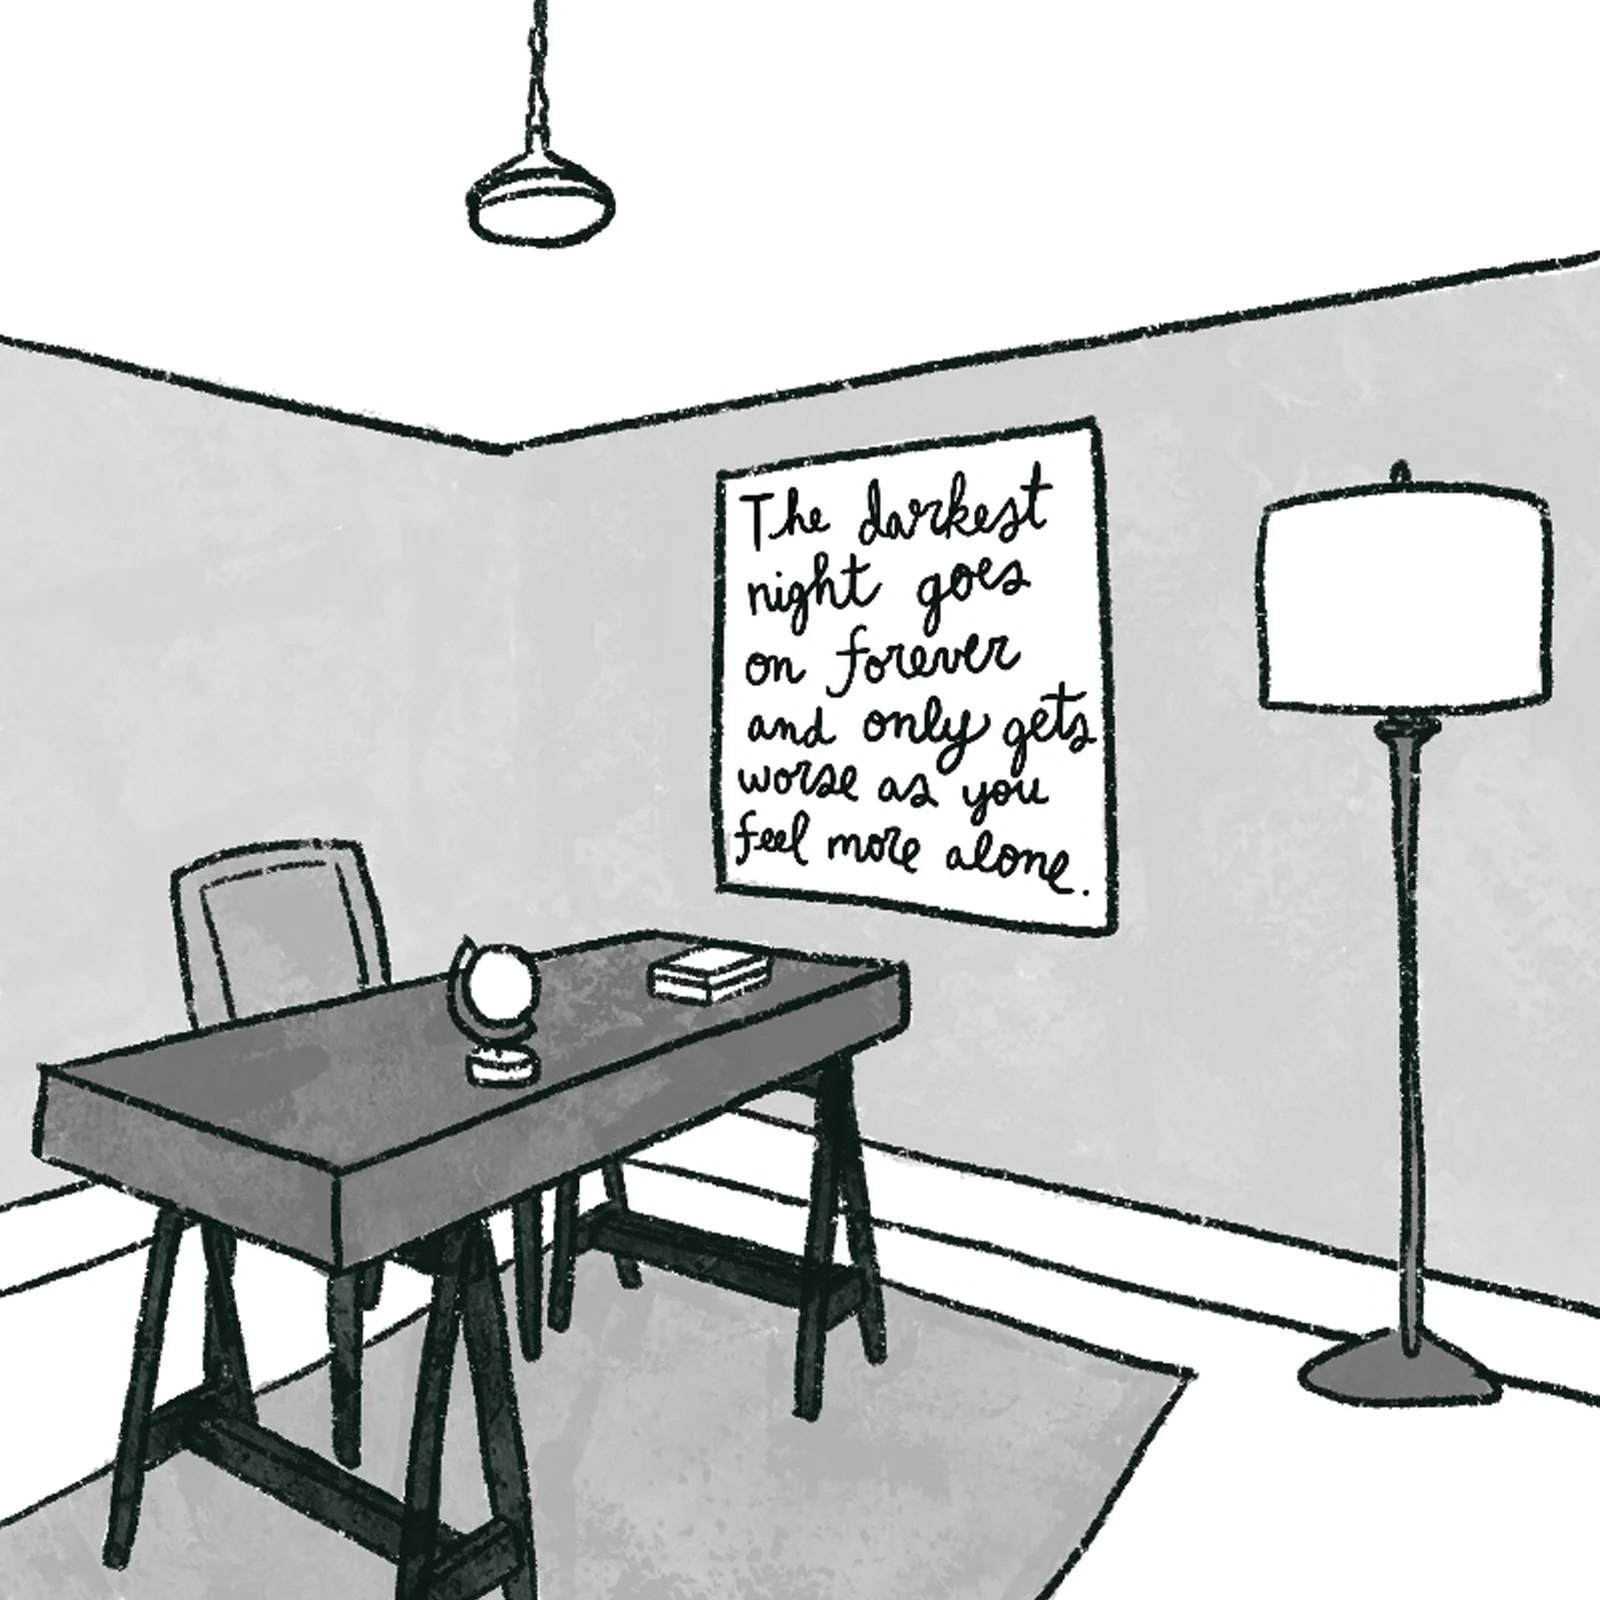 The darkest
night goes
on forever
and only gets
worse as you
feel more alone.